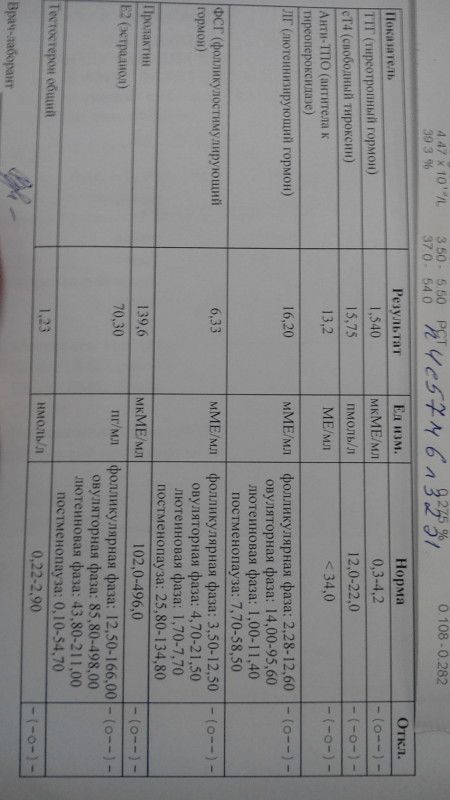 4.47 x 10¹²/L 3.50 - 5.50 PCT 0.275 % 0.108 - 0.282
39.3 % 37.0 - 54.0
Показатель Результат Ед изм. Норма Откл.
ТТГ (тиреотропный гормон) 1,540 мкМЕ/мл 0,3-4,2 -(○--)-
сТ4 (свободный тироксин) 15,75 пмоль/л 12,0-22,0 -(-○-)-
Анти-ТПО (антитела к
тиреопероксидазе) 13,2 МЕ/мл < 34,0 -(-○-)-
ЛГ (лютеинизирующий гормон) 16,20 мМЕ/мл фолликулярная фаза: 2,28-12,60 -(○--)-
овуляторная фаза: 14,00-95,60
лютеиновая фаза: 1,00-11,40
постменопауза: 7,70-58,50
ФСГ (фолликулостимулирующий
гормон) 6,33 мМЕ/мл фолликулярная фаза: 3,50-12,50 -(○--)-
овуляторная фаза: 4,70-21,50
лютеиновая фаза: 1,70-7,70
постменопауза: 25,80-134,80
Пролактин 139,6 мкМЕ/мл 102,0-496,0 -(○--)-
Е2 (эстрадиол) 70,30 пг/мл фолликулярная фаза: 12,50-166,00 -(○--)-
овуляторная фаза: 85,80-498,00
лютеиновая фаза: 43,80-211,00
постменопауза: 0,10-54,70
Тестостерон общий 1,23 нмоль/л 0,22-2,90 -(-○-)-
Врач-лаборант